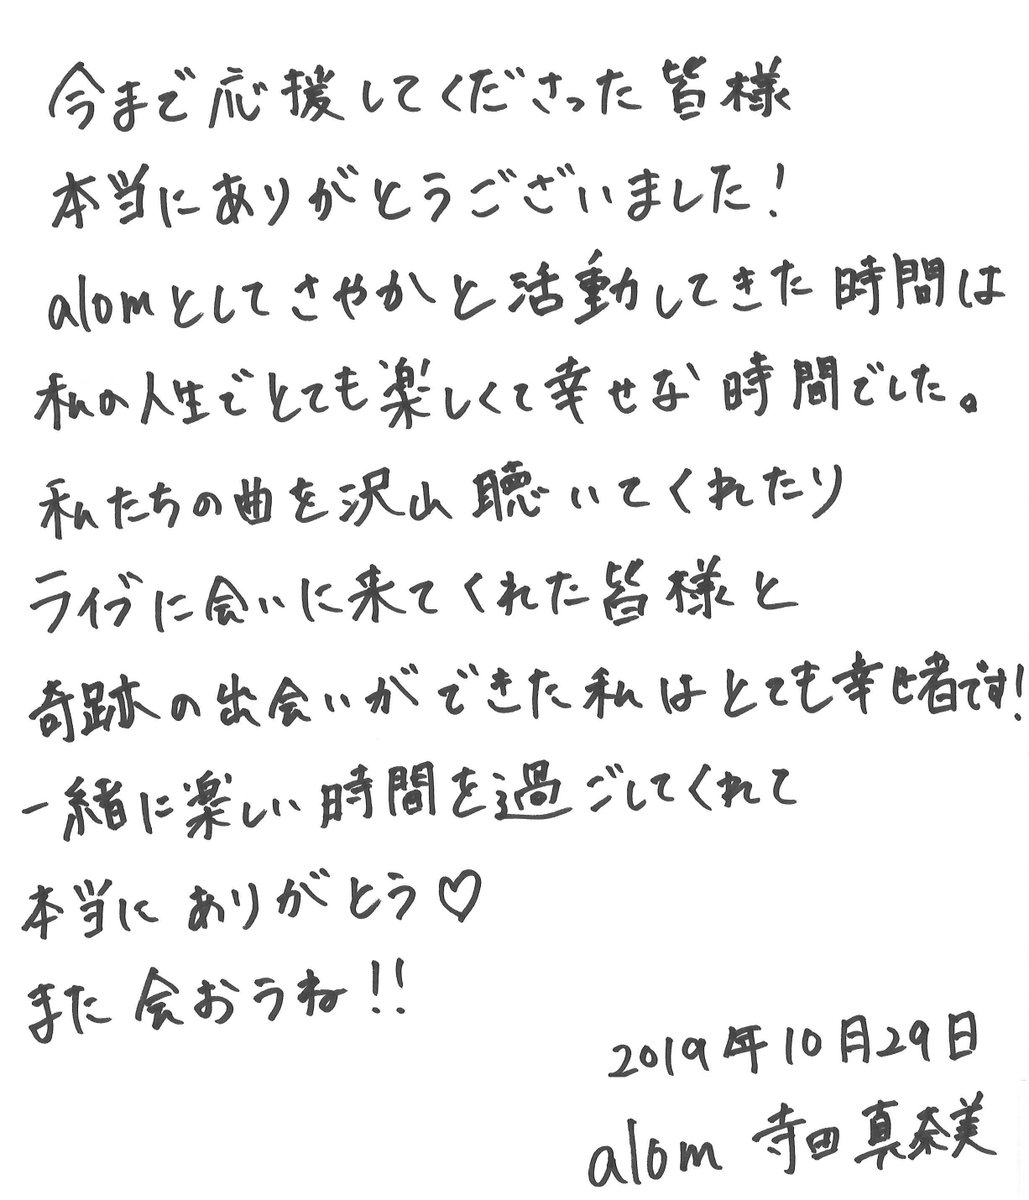 今まで応援してくださった皆様
本当にありがとうございました!
alomとしてさやかと活動してきた時間は
私の人生でとても楽しくて幸せな時間でした。
私たちの曲を沢山聴いてくれたり
ライブに会いに来てくれた皆様と
奇跡の出会いができた私はとても幸せ者です!
一緒に楽しい時間を過ごしてくれて
本当にありがとう♡
また会おうね!!
2019年10月29日
alom 寺田真奈美